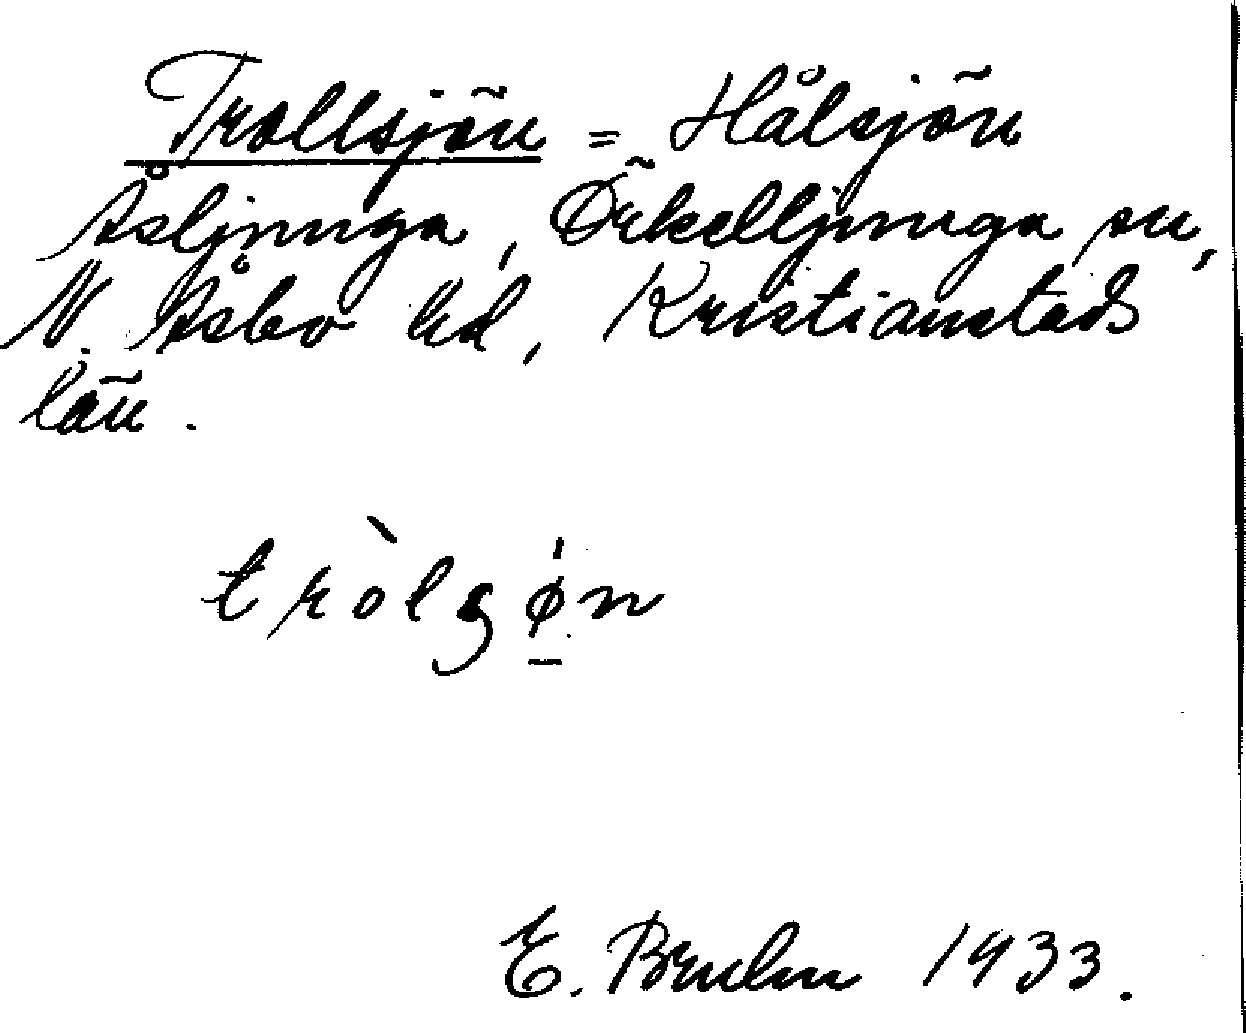 Trollsjön = Hålsjön
Åsljunga, Örkelljunga sn,
N. Åsbo hd, Kristianstads
län.
tròlsǿ̱n
E. Bruhn 1933.